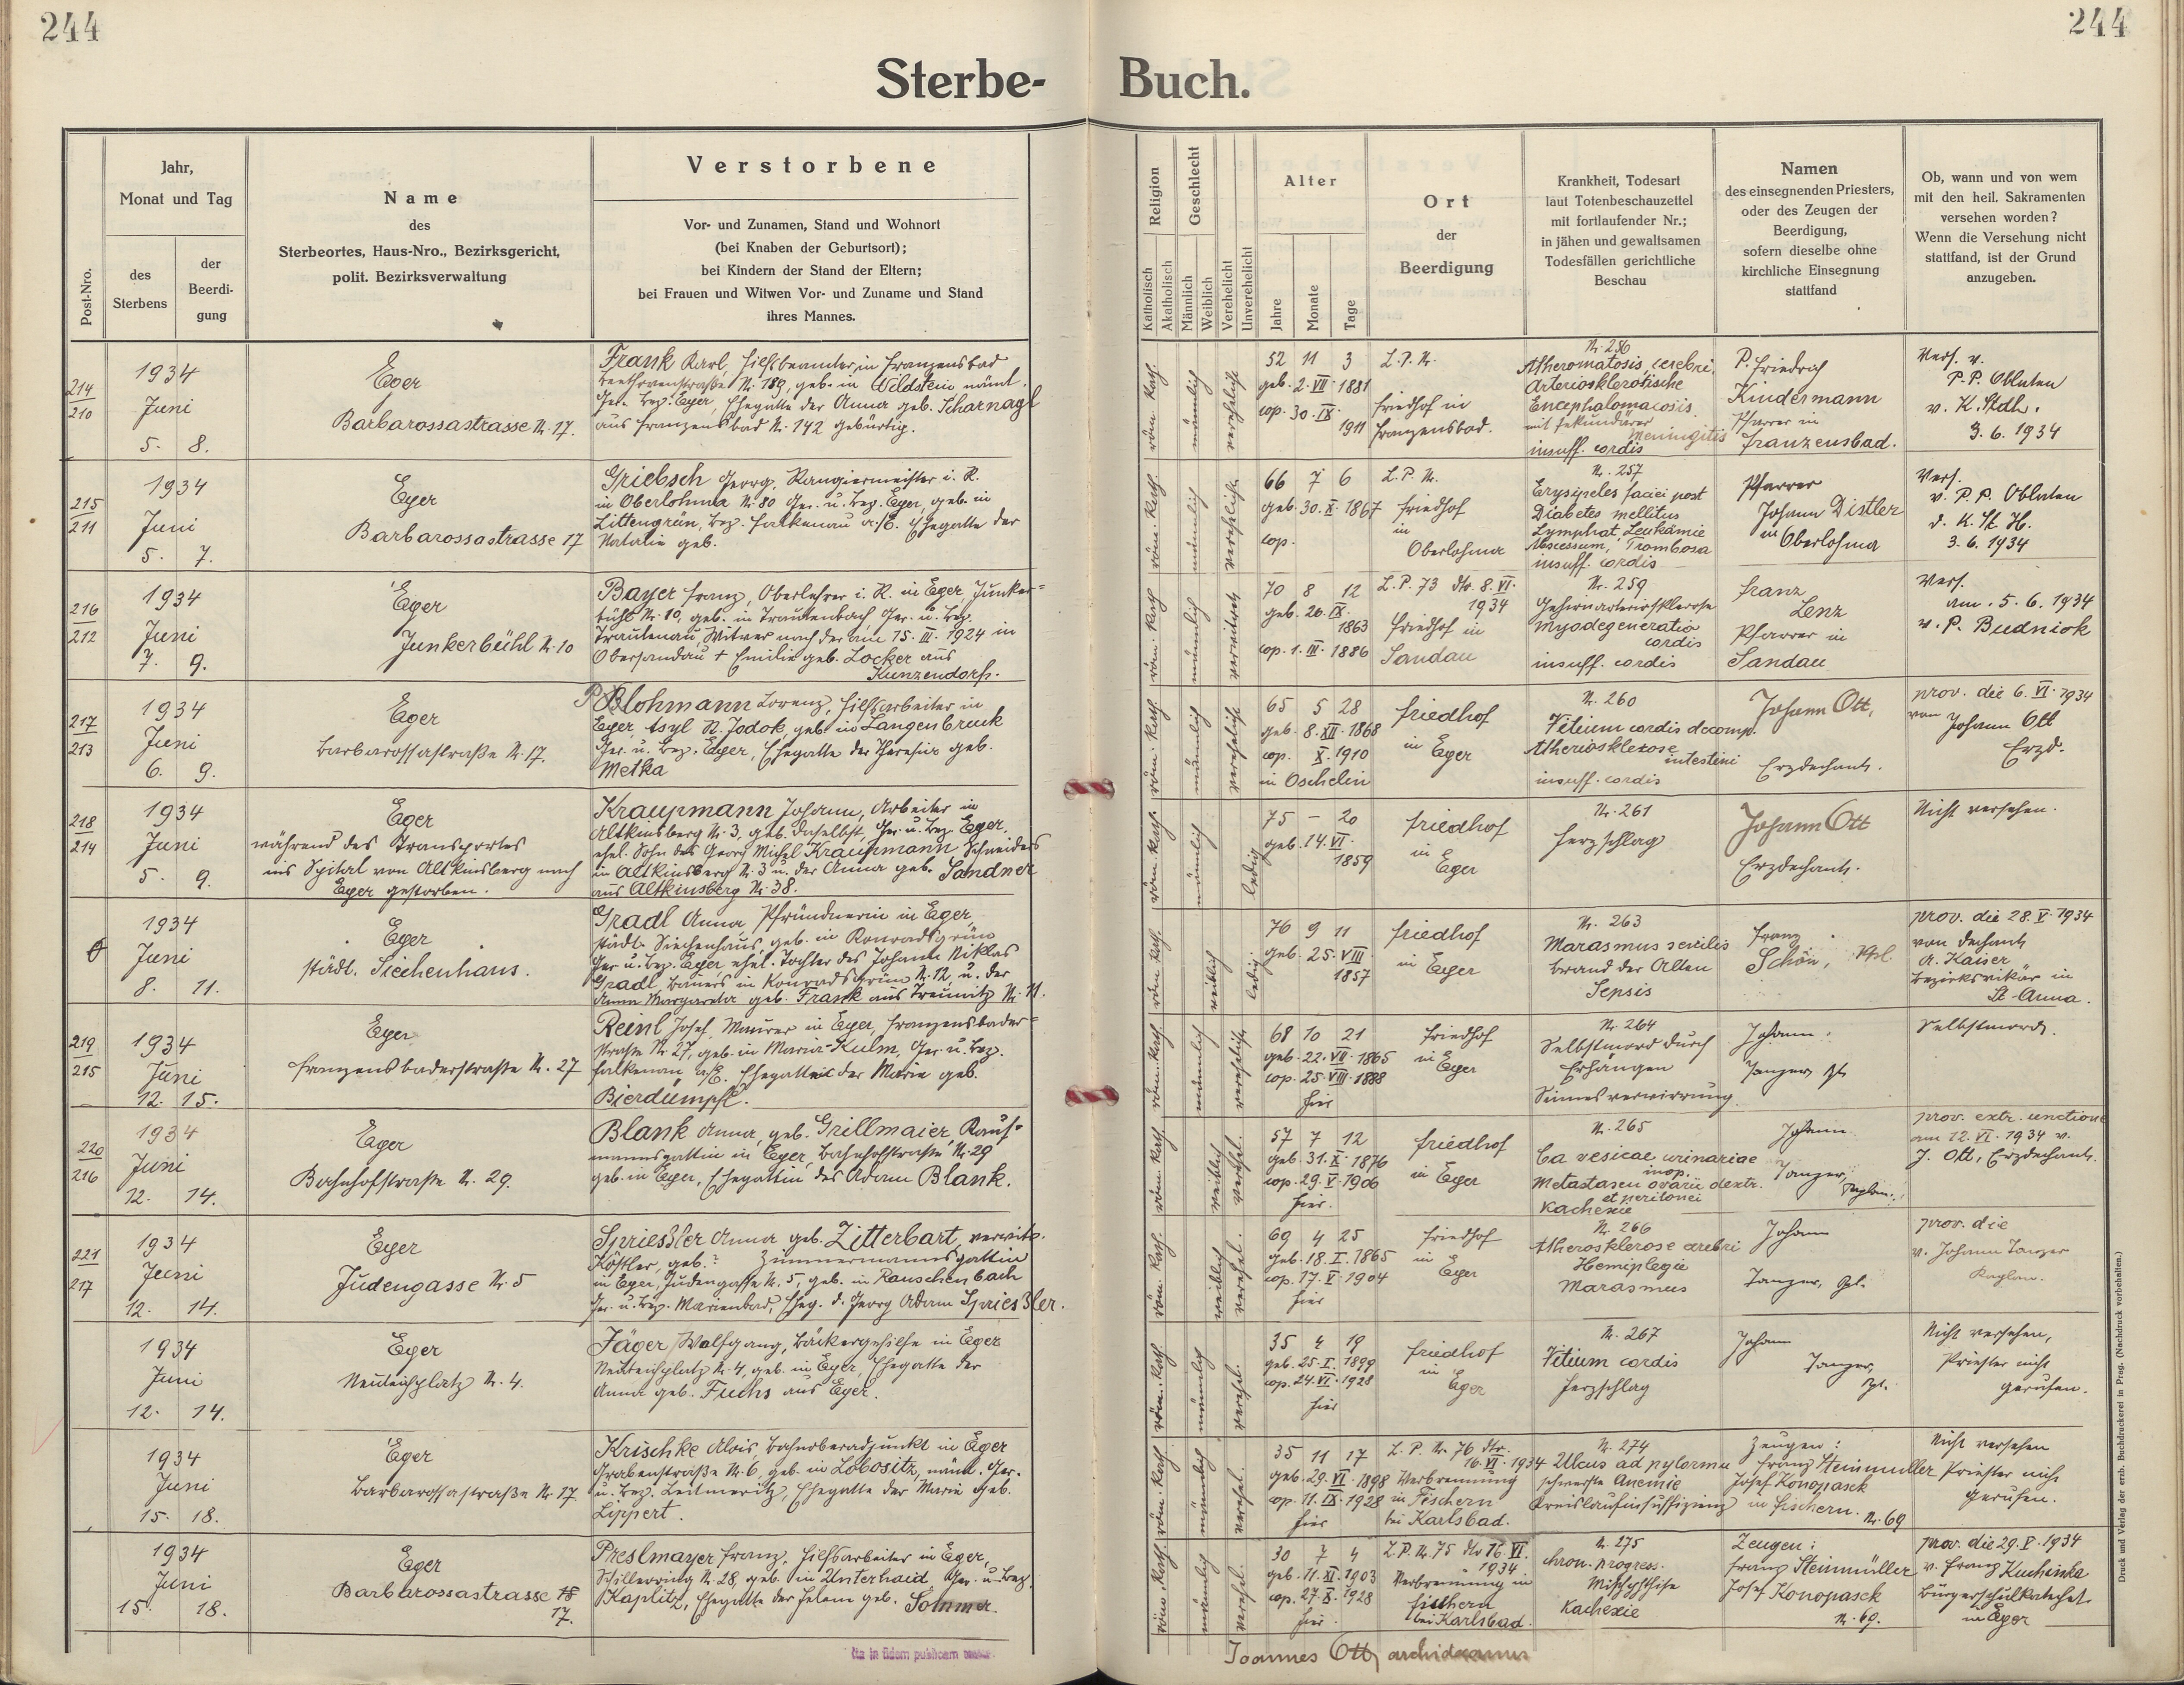 244
244
Sterbe-
Buch.
Post-Nro.
Jahr,
Monat und Tag
des
Sterbens
der
Beerdi-
gung
Name
des
Sterbeortes, Haus-Nro., Bezirksgericht,
polit. Bezirksverwaltung
Verstorbene
Vor- und Zunamen, Stand und Wohnort
(bei Knaben der Geburtsort);
bei Kindern der Stand der Eltern;
bei Frauen und Witwen Vor- und Zuname und Stand
ihres Mannes.
Religion
Katholisch
Akatholisch
Geschlecht
Männlich
Weiblich
Verehelicht
Unverehelicht
Alter
Jahre
Monate
Tage
Ort
der
Beerdigung
Krankheit, Todesart
laut Totenbeschauzettel
mit fortlaufender Nr.;
in jähen und gewaltsamen
Todesfällen gerichtliche
Beschau
Namen
des einsegnenden Priesters,
oder des Zeugen der
Beerdigung,
sofern dieselbe ohne
kirchliche Einsegnung
stattfand
Ob, wann und von wem
mit den heil. Sakramenten
versehen worden?
Wenn die Versehung nicht
stattfand, ist der Grund
anzugeben.
214
210
1934
Juni
5. 8.
Eger
Barbarossastrasse N. 17.
Frank Karl, Hilfsbeamter in Franzensbad
Beethovenstraße N. 189, geb. in Wildstein näml.
Ger. Bez. Eger, Ehegatte der Anna geb. Scharnagl
aus Franzensbad N. 142 gebürtig.
röm. kath.
männlich
verehelicht
52 11 3
geb. 2. VII. 1881
cop. 30. IX.
1911
L. P. N.
Friedhof in
Franzensbad.
N. 256
Atheromatosis cerebri,
Arteriosklerotische
Encephalomacosis
mit sekundärer
Meningitis
insuff. cordis
P. Friedrich
Kindermann
Pfarrer in
Franzensbad.
Vers. v.
P.P. Oblaten
v. K. Stdh.
3. 6. 1934
215
211
1934
Juni
5. 7.
Eger
Barbarossastrasse 17
Griebsch Georg, Rangiermeister i. R.
in Oberlohma N. 80 Ger. u. Bez. Eger, geb. in
Littengrün, Bez. Falkenau a./E. Ehegatte der
Natalie geb.
röm. kath.
männlich
verehelicht
66 7 6
geb. 30. X. 1867
cop.
L. P. N.
Friedhof
in
Oberlohma
N. 257
Erysipeles faciei post
Diabetes mellitus
Lymphat. Leukämie
Abscessum, Trombosa
insuff. cordis
Pfarrer
Johann Distler
in Oberlohma
Vers.
v. P. P. Oblaten
d. K. St. H.
3. 6. 1934
216
212
1934
Juni
7. 9.
Eger
Junkerbühl N. 10
Bayer Franz, Oberlehrer i. R. in Eger, Junker-
bühl N. 10, geb. in Trautenbach, Ger. u. Bez.
Trautenau, Witwer nach der am 15. III. 1924 in
Obersandau + Emilie geb. Locker aus
Kunzendorf.
röm. kath.
männlich
verwitwet
70 8 12
geb. 26. IX.
1863
cop. 1. III. 1886
L. P. 73 dto. 8. VI.
1934
Friedhof in
Sandau
N. 259
Gehirnarteriosklerose
Myodegeneratio
cordis
insuff. cordis
Franz
Lenz
Pfarrer in
Sandau
Vers.
am. 5. 6. 1934
v. P. Budniok
217
213
1934
Juni
6. 9.
Eger
Barbarossastraße N. 17.
Blohmann Lorenz, Hilfsarbeiter in
Eger, Asyl St. Jodok, geb. in Langenbruck
Ger. u. Bez. Eger, Ehegatte der Theresia geb.
Metka
röm. kath.
männlich
verehelicht
65 5 28
geb. 8. XII. 1868
cop. X. 1910
in Oschelin
Friedhof
in Eger
N. 260
Vitium cordis decomp.
Atheriosklerose
intestini
insuff. cordis
Johann Ott,
Erzdechant.
prov. die 6. VI. 1934
von Johann Ott
Erzd.
218
214
1934
Juni
5. 9.
Eger
während des Transportes
ins Spital von Altkinsberg nach
Eger gestorben.
Kraupmann Johann, Arbeiter in
Altkinsberg N. 3, geb. daselbst, Ger. u. Bez. Eger,
ehel. Sohn des Georg Michl Kraupmann Schneiders
in Altkinsberg N. 3 u. der Anna geb. Sandner
aus Altkinsberg N. 38.
röm. kath.
männlich
ledig
75 – 20
geb. 14. VI.
1859
Friedhof
in
Eger
N. 261
Herzschlag
Johann Ott
Erzdechant.
Nicht versehen.
1934
Juni
8. 11.
Eger
städt. Siechenhaus.
Gradl Anna, Pfründnerin in Eger,
städt. Siechenhaus, geb. in Konradsgrün
Ger. u. Bez. Eger, ehel. Tochter des Johann Niklas
Gradl, Bauers in Konradsgrün N. 12, u. der
Anna Margareta geb. Frank aus Treunitz N. 11.
röm. kath.
weiblich
ledig.
76 9 11
geb. 25. VIII
1857
Friedhof
in Eger
N. 263
Marasmus senilis
Brand der Alten
Sepsis
Franz
Schön, Kpl.
prov. die 28. V. 1934
von Dechant
A. Kaiser
Bezirksvikär in
St. Anna.
219
215
1934
Juni
12. 15.
Eger
Franzensbaderstraße N. 27
Reinl Josef, Maurer in Eger, Franzensbader-
straße N. 27, geb. in Maria-Kulm, Ger. u. Bez.
Falkenau a/E. Ehegatte der Marie geb.
Bierdümpfl.
röm. kath.
männlich
verehelicht
68 10 21
geb. 22. VII. 1865
cop. 25. VIII. 1888
hier
Friedhof
in Eger
N. 264
Selbstmord durch
Erhängen
Sinnesverwirrung
Johann
Tanzer, Kpl.
Selbstmord.
220
216
1934
Juni
12. 14.
Eger
Bahnhofstraße N. 29.
Blank Anna, geb. Grillmaier, Kauf-
mannsgattin in Eger, Bahnhofstraße N. 29
geb. in Eger, Ehegattin des Adam Blank.
röm. kath.
weiblich
verehel.
57 7 12
geb. 31. X. 1876
cop. 29. V. 1906
hier.
Friedhof
in Eger
N. 265
Ca vesicae urinariae
inop.
Metastasen ovarii dextr.
et peritonei
Kachexie
Johann
Tanzer,
Kaplan.
prov. extr. unctione
am 12. VI. 1934 v.
J. Ott, Erzdechant.
221
217
1934
Juni
12. 14.
Eger
Judengasse N. 5
Spriessler Anna geb. Zitterbart, verwitw.
Köstler, geb.? Zimmermannsgattin
in Eger, Judengasse N. 5, geb. in Rauschenbach
Ger. u. Bez. Marienbad, Eheg. d. Georg Adam Spriessler.
röm. kath.
weiblich
verehel.
69 4 25
geb. 18. I. 1865
cop. 17. V. 1904
hier
Friedhof
in
Eger
N. 266
Atherosklerose cerebri
Hemiplegie
Marasmus
Johann
Tanzer, Kpl.
prov. die
v. Johann Tanzer
Kaplan.
1934
Juni
12. 14.
Eger
Neuteichplatz N. 4.
Jäger Wolfgang, Bäckergehilfe in Eger
Neuteichplatz N. 4, geb. in Eger, Ehegatte der
Anna geb. Fuchs aus Eger.
röm. kath.
männlich
verehel.
35 4 19
geb. 25. I. 1899
cop. 24. VI. 1928
hier
Friedhof
in
Eger
N. 267
Vitium cordis
Herzschlag
Johann
Tanzer,
Kpl.
Nicht versehen,
Priester nicht
gerufen.
1934
Juni
15. 18.
Eger
Barbarossastraße N. 17
Krischke Alois, Bahnoberadjunkt in Eger
Grabenstraße N. 6, geb. in Lobositz, näml. Ger.
u. Bez. Leitmeritz, Ehegatte der Marie geb.
Lippert.
röm. kath.
männlich
verehel.
35 11 17
geb. 29. VI. 1898
cop. 11. IX. 1928
hier
L. P. N. 76 dto.
16. VI. 1934
Verbrennung
in Fischern
bei Karlsbad.
N. 274
Ulcus ad pylorum
schwerste Anemie
Kreislaufinsuffizienz
Zeugen:
Franz Steinmüller
Josef Konopasek
in Fischern. N. 69
Nicht versehen
Priester nicht
gerufen.
1934
Juni
15. 18.
Eger
Barbarossastrasse
17.
Preslmayer Franz, Hilfsarbeiter in Eger,
Schillerring N. 28, geb. in Unterhaid Ger. u. Bez.
Kaplitz, Ehegatte der Helene geb. Sommer.
röm. kath.
männlich
verehel.
30 7 4
geb. 11. XI. 1903
cop. 27. X. 1928
hier.
L. P. N. 75 dto 16. VI.
1934
Verbrennung in
Fischern
bei Karlsbad.
N. 275
chron. progress.
Kachexie
Zeugen:
Franz Steinmüller
Josef Konopasek
N. 69.
prov. die 29. V. 1934
v. Franz Kuchinka
Bürgerschulkatechet
in Eger
Ita in fidem publicam
Joannes Ott, archidecanus
Druck und Verlag der erzb. Buchdruckerei in Prag. (Nachdruck vorbehalten.)